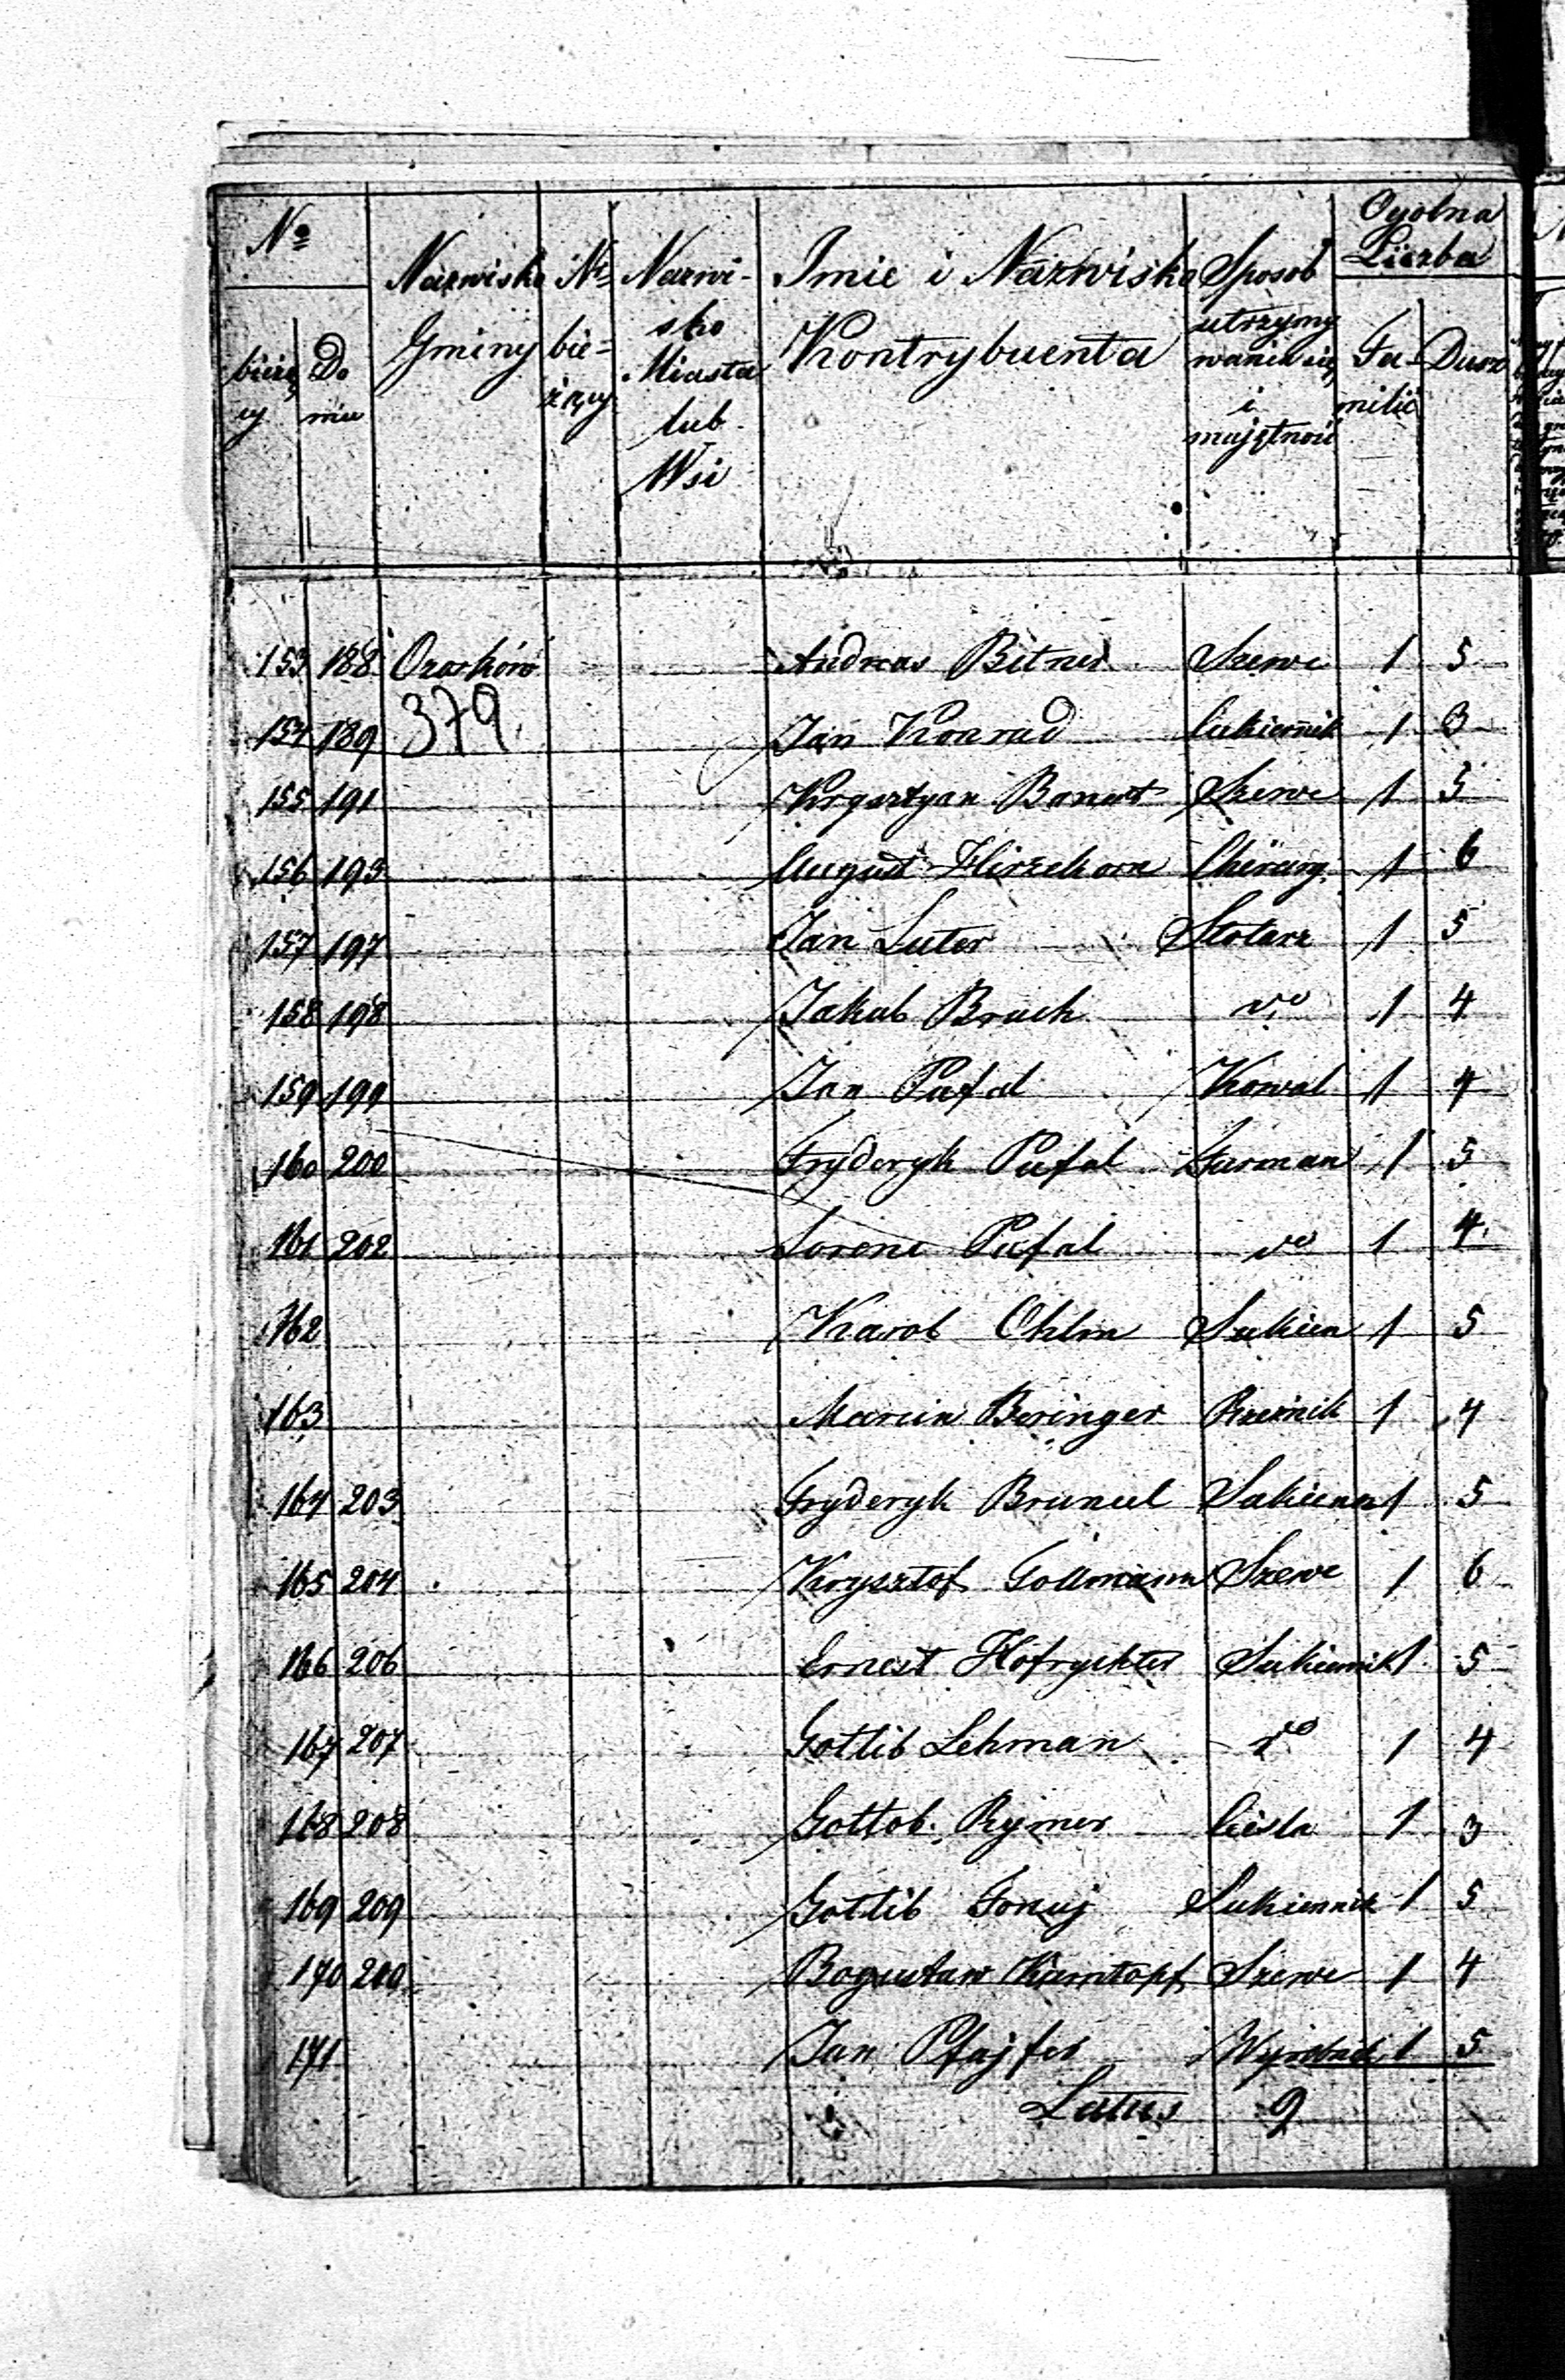 No Nazwisko No Nazwi- Imie i Nazwisko Sposob Ogolna Liczba
bieżą cy Do mu Gminy bie- żący sko Miasta lub Wsi Kontrybuenta utrzymy wania się i majętność Fa- milii Dusz
153 188 Ozorków Andreas Bitner Szewc 1 5
154 189 379. Jan Konrad Cukiernik 1 3
155 191 Krysztyan Szewc 1 5
156 193 August Hirszhorn Chirurg. 1 6
157 197 Jan Luter Stolarz 1 5
158 198 Jakub Bruch do 1 4
159 199 Jan Pufal Kowal 1 4
160 200 Fryderyk Pufal Furman 1 5
161 202 Lorenc Pufal do 1 4
162 Karol Ohlm Sukien 1 5
163 Marcin Beringer Rzeźnik 1 4
164 203 Fryderyk Sukienn 1 5
165 204 Krysztof Gollmann Szewc 1 6
166 206 Ernest Hofrychter Sukiennik 1 5
167 207 Gotlib Lehman do 1 4
168 208 Gottob. Rymer Cieśla 1 3
169 209 Gotlib Sukiennik 1 5
170 Bogusław Szewc 1 4
171 Jan Pfajfer Wyrobnik 1 5
Latus 9